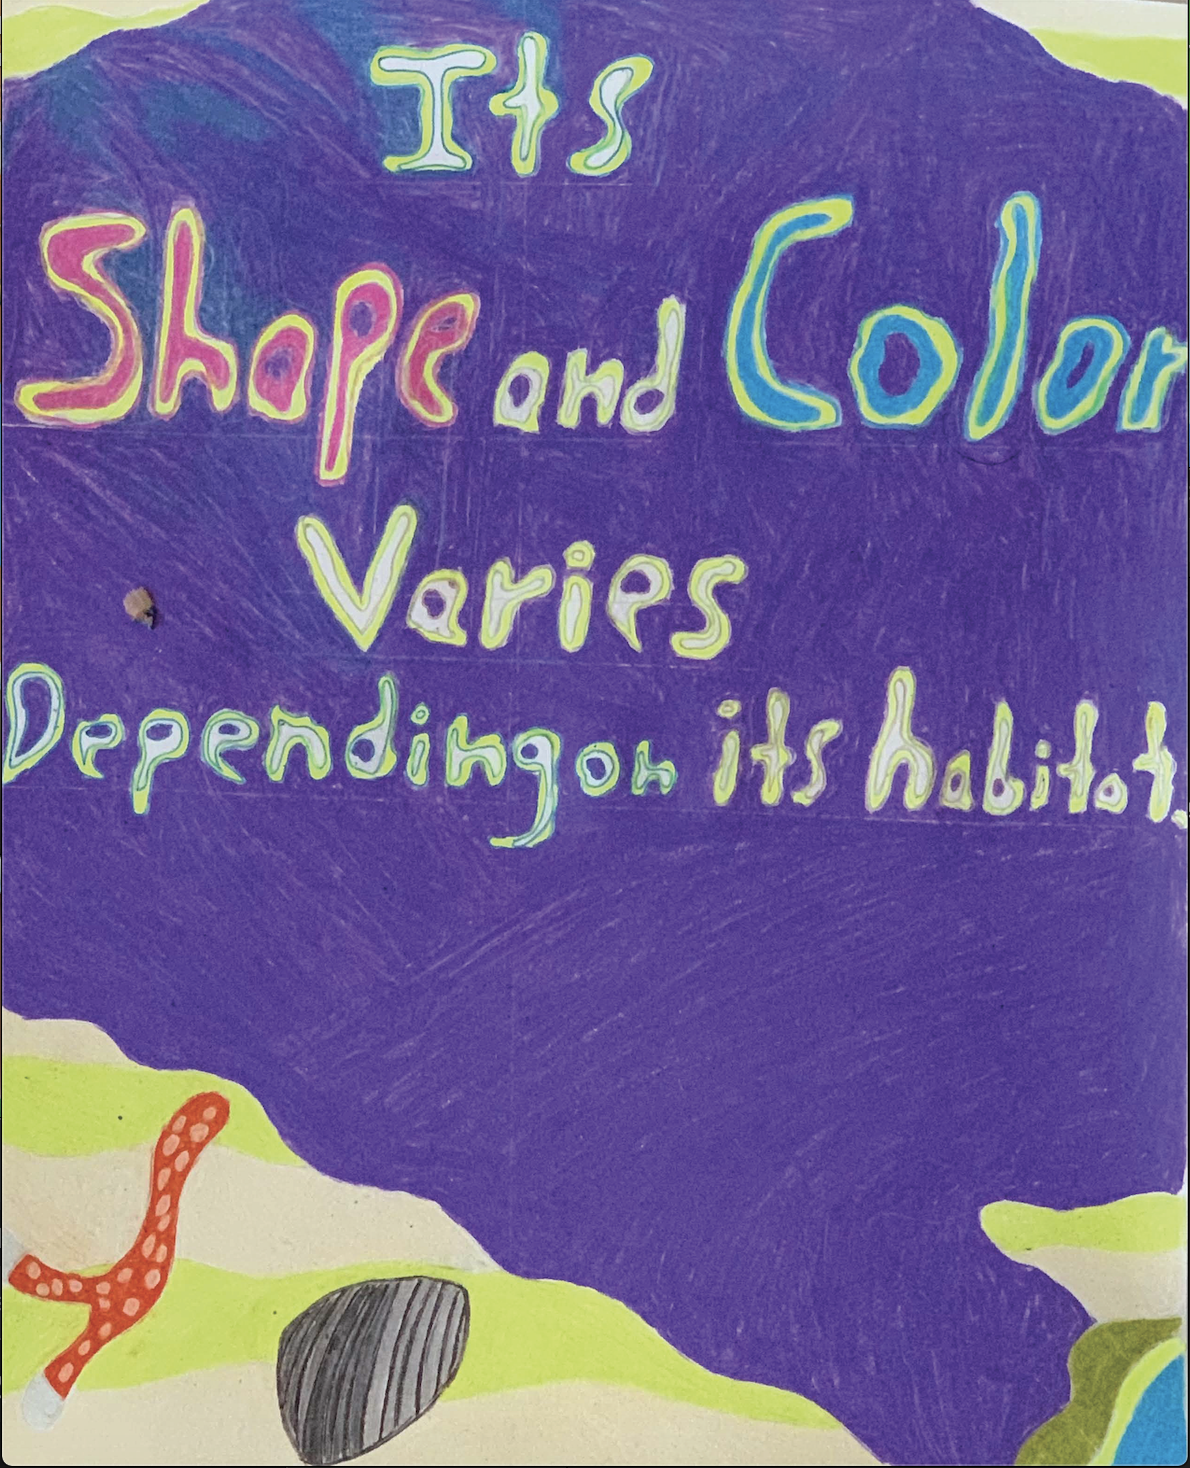 Its
Shape and Color
Varies
Depending on its habitat.